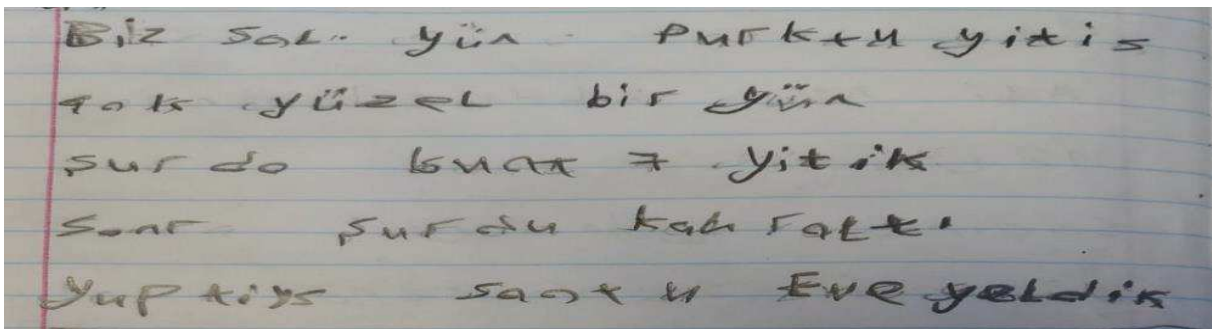 Biz sal.. yün purktu yitis
çok yüzel bir yün
purdo buat 7 yitik
sonr purdu kah ratt
yup tiys saat u Eve yeldik